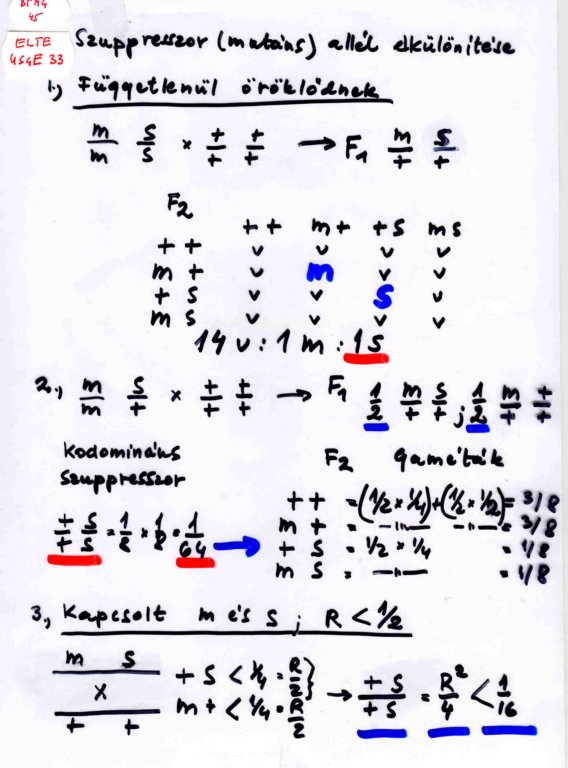 BPMG
45
ELTE
4S4E 33
Szuppresszor (mutáns) allél elkülönítése
1., Függetlenül öröklődnek
m/m S/S × +/+ +/+ → F1 m/+ S/+
F2
++ m+ +S mS
++ v v v v
m+ v m v v
+S v v S v
mS v v v v
14 v : 1 m : 1S
2., m/m S/+ × +/+ +/+ → F1 1/2 m/+ S/+ ; 1/2 m/+ +/+
Kodomináns
szuppresszor
F2 gaméták
++ = (1/2 × 1/4) + (1/2 × 1/2) = 3/8
m+ = —"— —"— = 3/8
+S = 1/2 × 1/4 = 1/8
mS = —"— = 1/8
+S/+S = 1/8 × 1/8 = 1/64 →
3., Kapcsolt m és S ; R < 1/2
m S
×
+ +
+S < 1/4 = R/2 }
m+ < 1/4 = R/2
→ +S/+S = R²/4 < 1/16